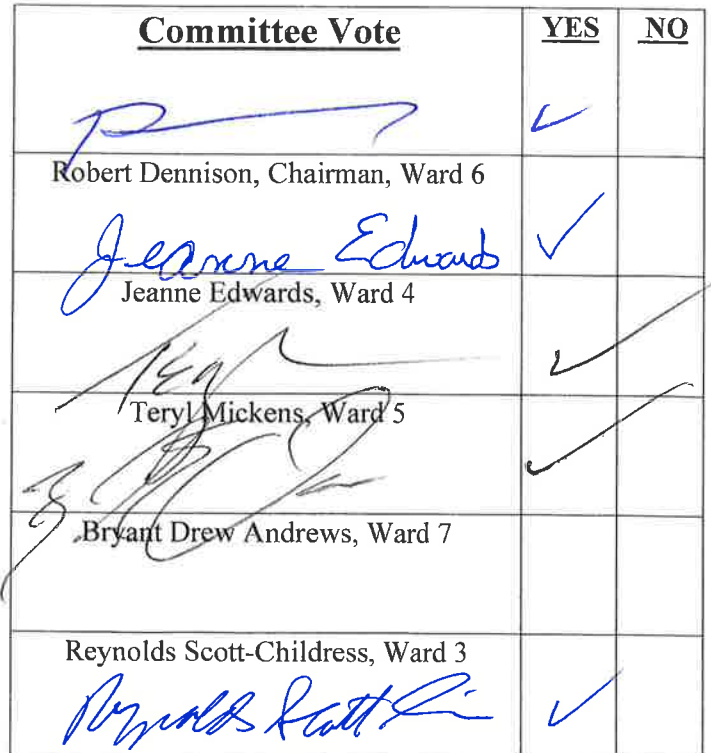 Committee Vote YES NO
✓
Robert Dennison, Chairman, Ward 6
Jeanne Edwards ✓
Jeanne Edwards, Ward 4
✓
Teryl Mickens, Ward 5
✓
Bryant Drew Andrews, Ward 7
Reynolds Scott-Childress, Ward 3
Reynolds Scott ✓